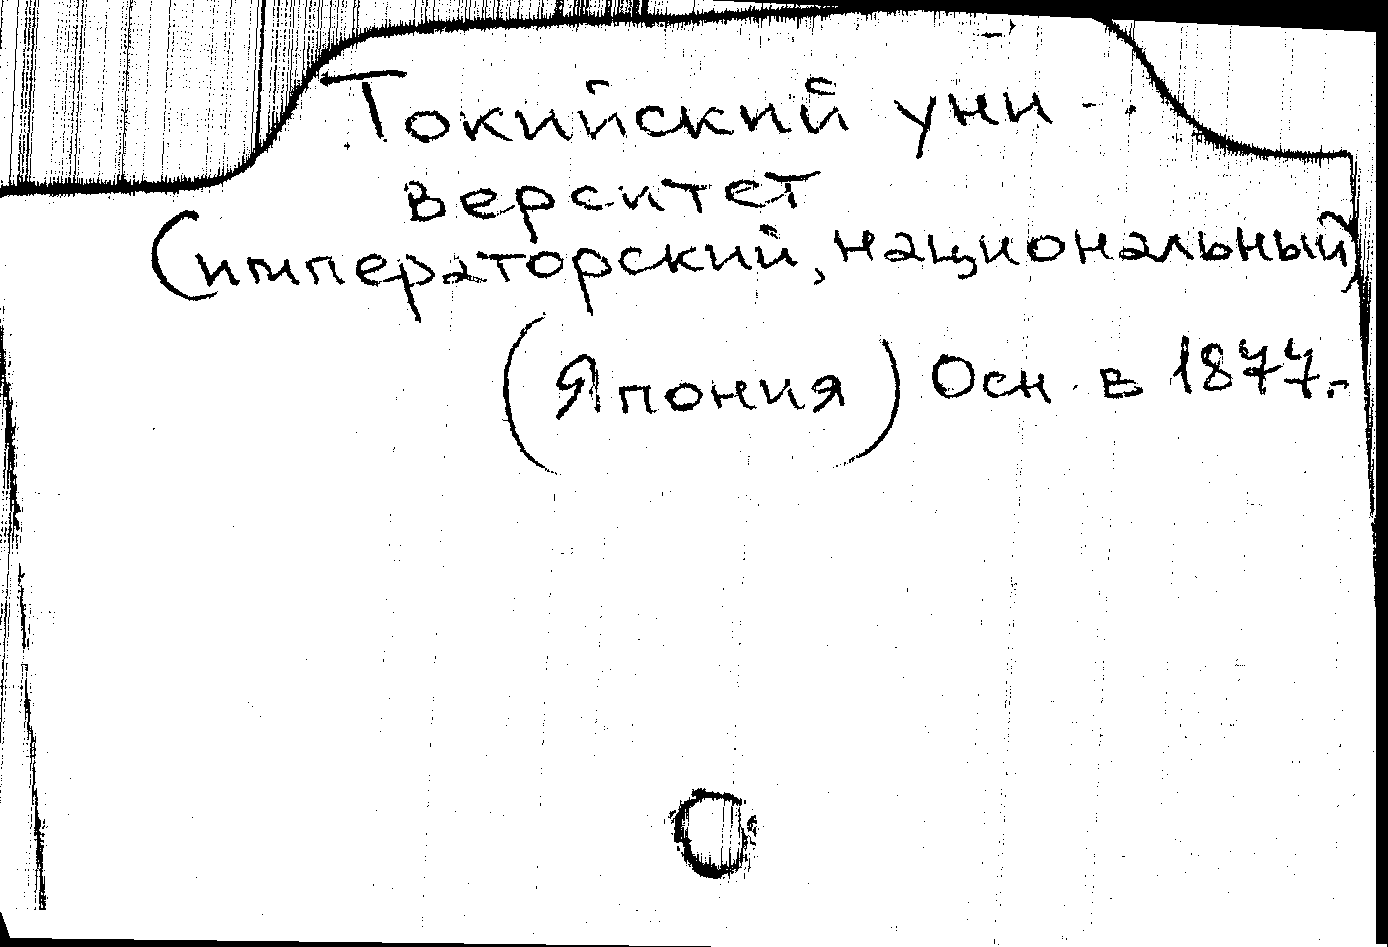 Токийский уни-
верситет
(императорский, национальный)
(Япония) Осн. в 1877.